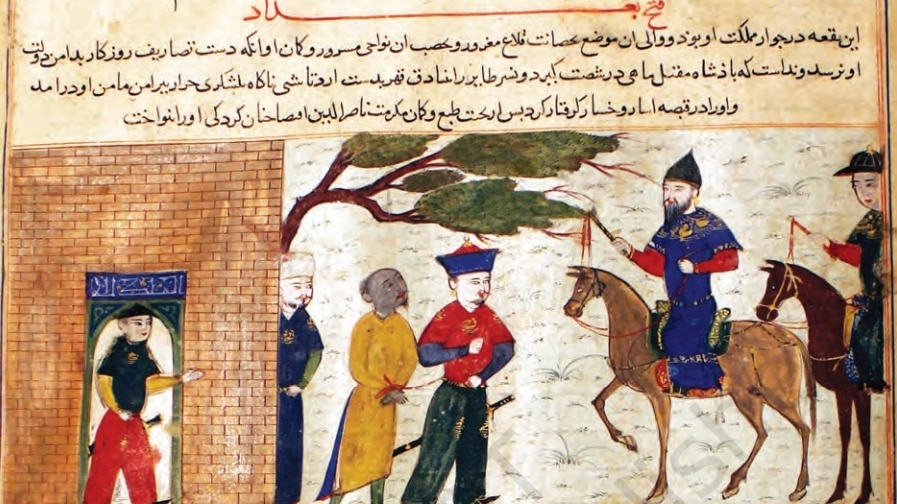 فتح بغداد
این بقعه در جوار مملکت او بود و والی ان موضع بحصانت قلاع مغرور و بخصب ان نواحی مسرور و کان او انکه دست تصاریف روزکار بدامن دولت
او نرسد و ندانست که باذشاه مقبل ماهی در شصت کیرد و نسر طایر را بنادق قهر بدست ارد تاشی ناکاه بلشکری جرار بیرامن مامن او در امد
و او را در قبضه گرفتار کرد بس از طبع و کان مکرمت ناصر الدین کی او را بنواخت